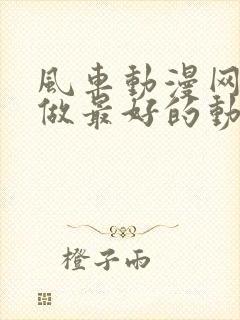 風車動漫网
做最好的動
橙子雨